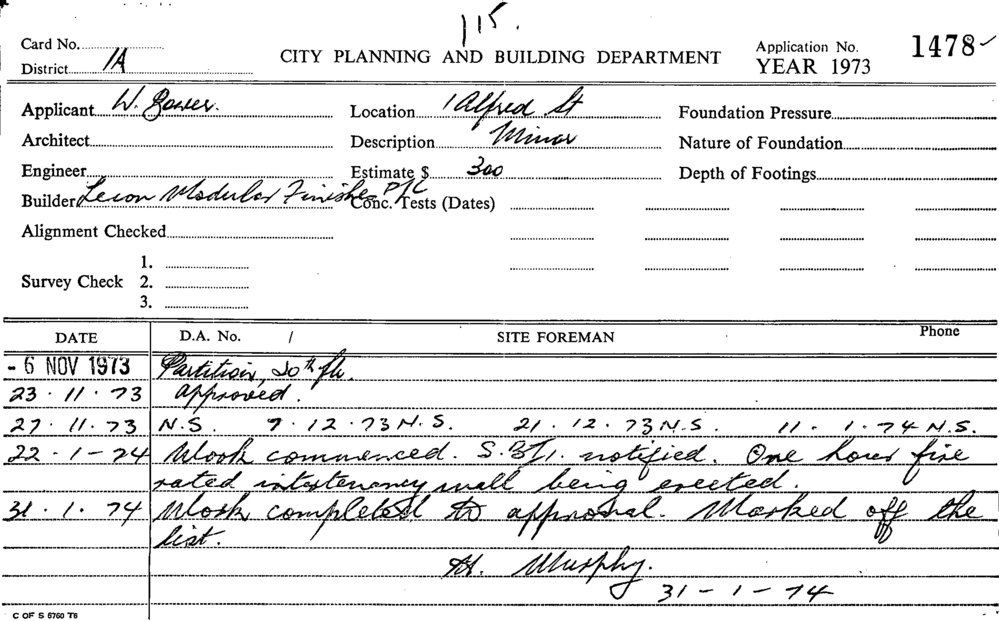 115.
Card No.
District 1A
CITY PLANNING AND BUILDING DEPARTMENT
Application No. 1478
YEAR 1973
Applicant W. Gower.
Location 1 Alfred St
Foundation Pressure
Architect
Description Minor
Nature of Foundation
Engineer
Estimate $ 300
Depth of Footings
Builder Modular Finishes P/L
Conc. Tests (Dates)
Alignment Checked
Survey Check
1.
2.
3.
DATE D.A. No. / SITE FOREMAN Phone
- 6 NOV 1973 Partition, 20th flr.
23 . 11 . 73 approved.
27 . 11 . 73 N.S. 7 . 12 . 73 N.S. 21 . 12 . 73 N.S. 11 . 1 . 74 N.S.
22 . 1 - 74 Work commenced. S.B.I. notified. One hour fire
rated intertenancy wall being erected.
31 . 1 . 74 Work completed to approval. Marked off the
list.
Murphy.
31 - 1 - 74
C OF S 5760 T6